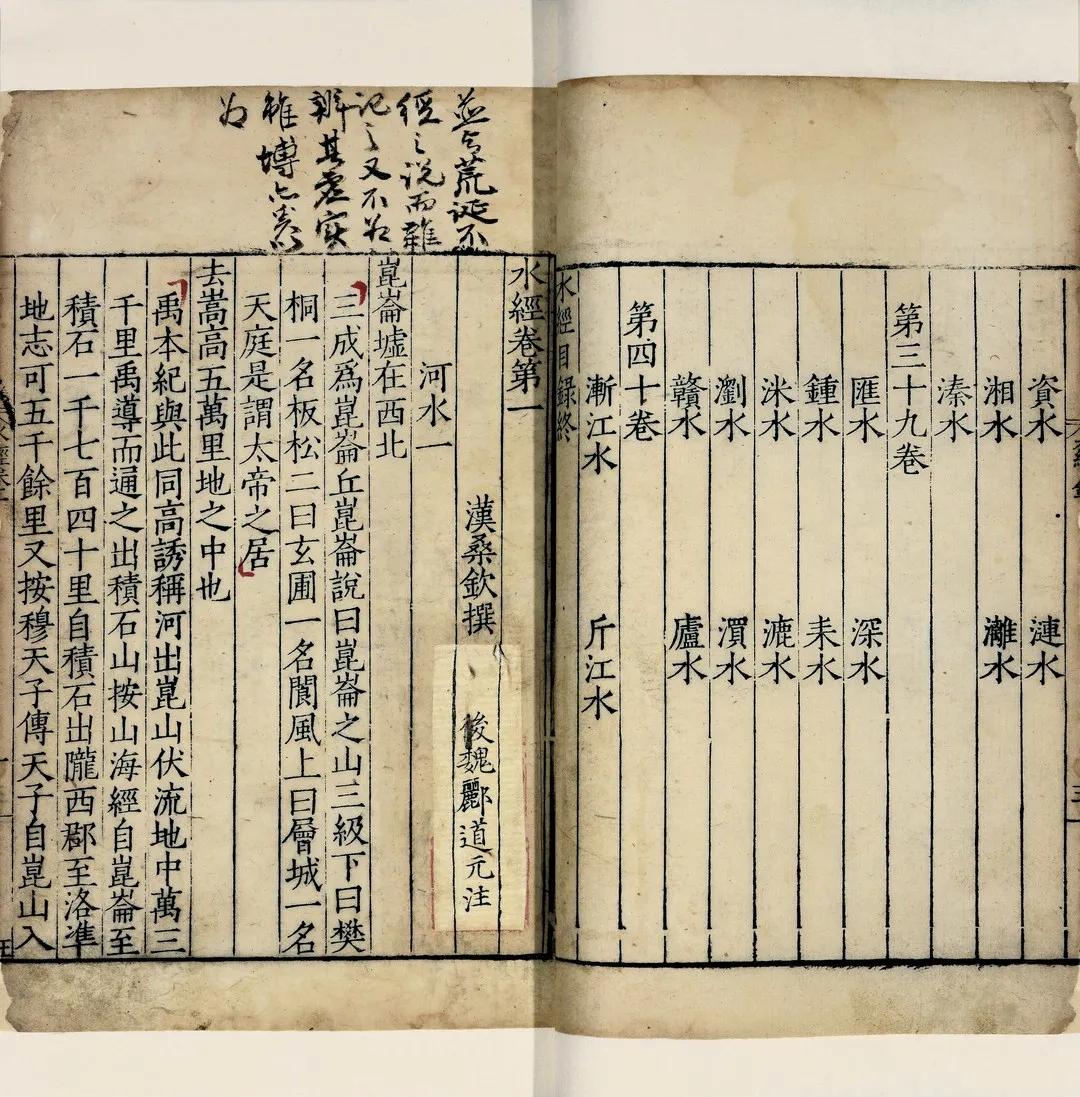 資水 漣水
湘水 灕水
溱水
第三十九卷
匯水 深水
鍾水 耒水
洣水 漉水
瀏水 水
贛水 廬水
第四十卷
漸江水 斤江水
水經目録終
荒誕不
經之說而雜
記之又不为
辨其虛實
雖博亦奚以
为
水經卷第一
漢桑欽撰 後魏酈道元注
河水一
崑崙墟在西北
三成爲崑崙丘崑崙說曰崑崙之山三級下曰樊
桐一名板松二曰玄圃一名閬風上曰層城一名
天庭是謂太帝之居
去嵩高五萬里地之中也
禹本紀與此同高誘稱河出崑山伏流地中萬三
千里禹導而通之出積石山按山海經自崑崙至
積石一千七百四十里自積石出隴西郡至洛準
地志可五千餘里又按穆天子傳天子自崑山入